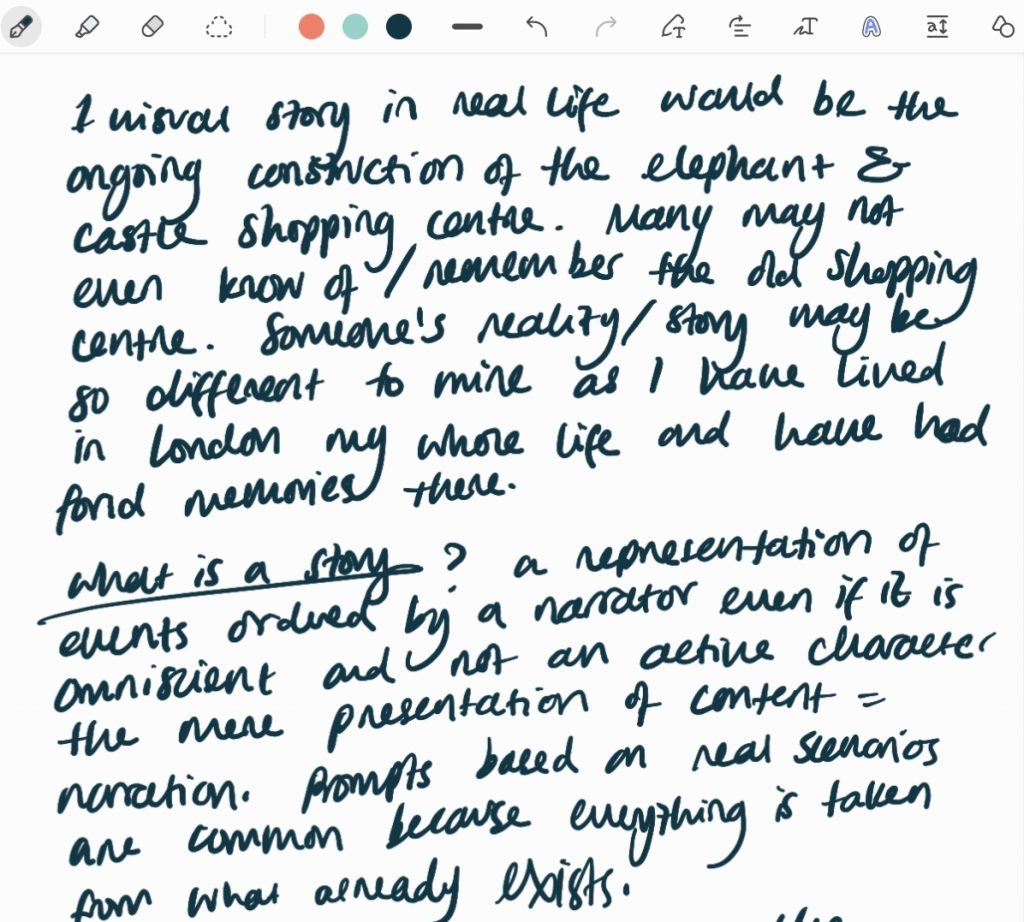 1 visual story in real life would be the
ongoing construction of the elephant &
castle shopping centre. Many may not
even know of / remember the old shopping
centre. Someone's reality / story may be
so different to mine as I have lived
in London my whole life and have had
fond memories there.
what is a story? a representation of
events ordered by a narrator even if it is
omniscient and not an active character
the mere presentation of content =
narration. Prompts based on real scenarios
are common because everything is taken
from what already exists.